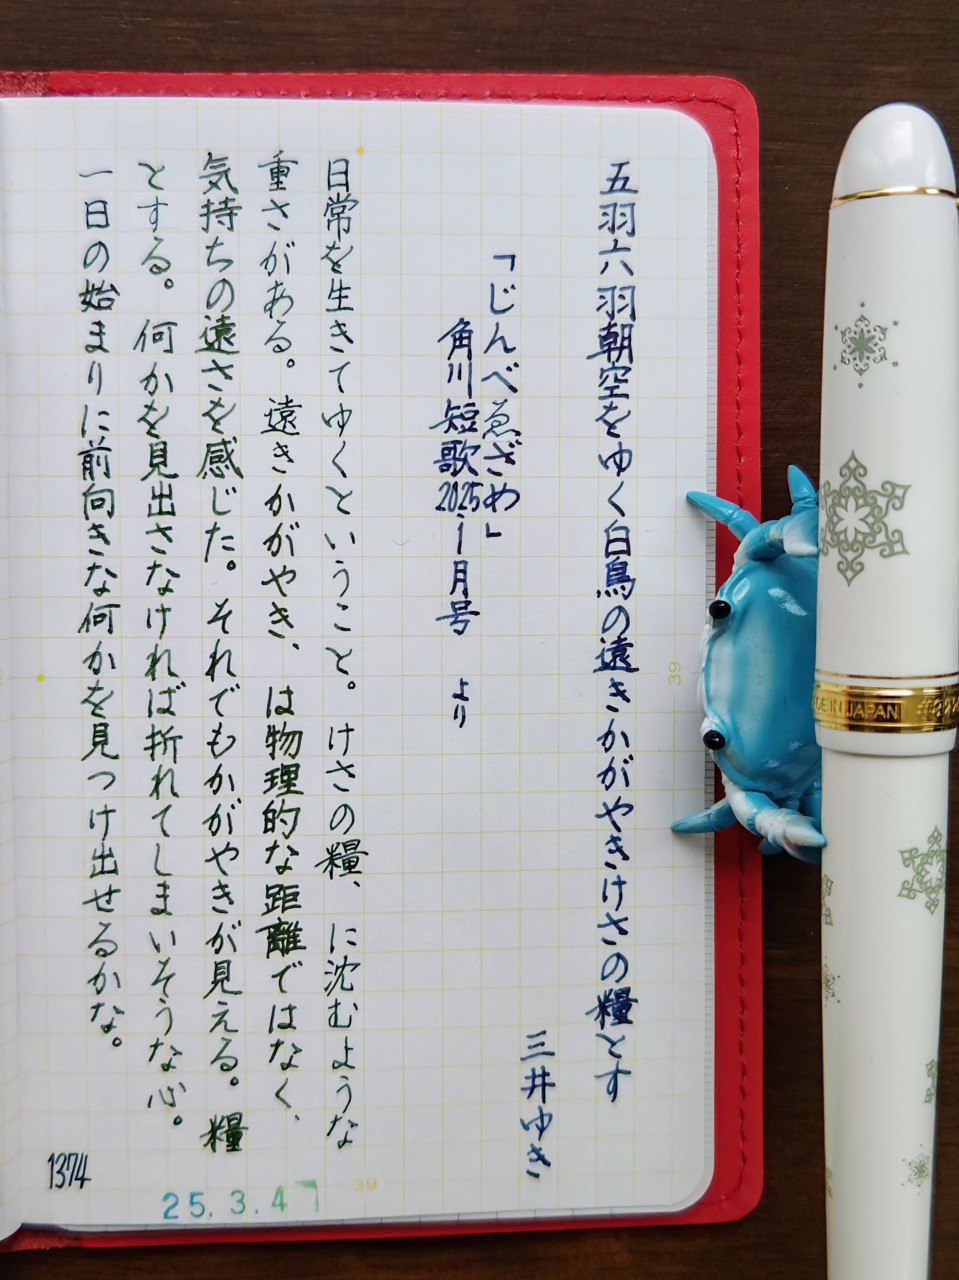 五羽六羽朝空をゆく白鳥の遠きかがやきけさの糧とす
三井ゆき
「じんべゑざめ」
角川短歌2025-1月号 より
日常を生きてゆくということ。けさの糧、に沈むような
重さがある。遠きかがやき、は物理的な距離ではなく、
気持ちの遠さを感じた。それでもかがやきが見える。糧
とする。何かを見出さなければ折れてしまいそうな心。
一日の始まりに前向きな何かを見つけ出せるかな。
1374
25.3.4
39
39
DE IN JAPAN